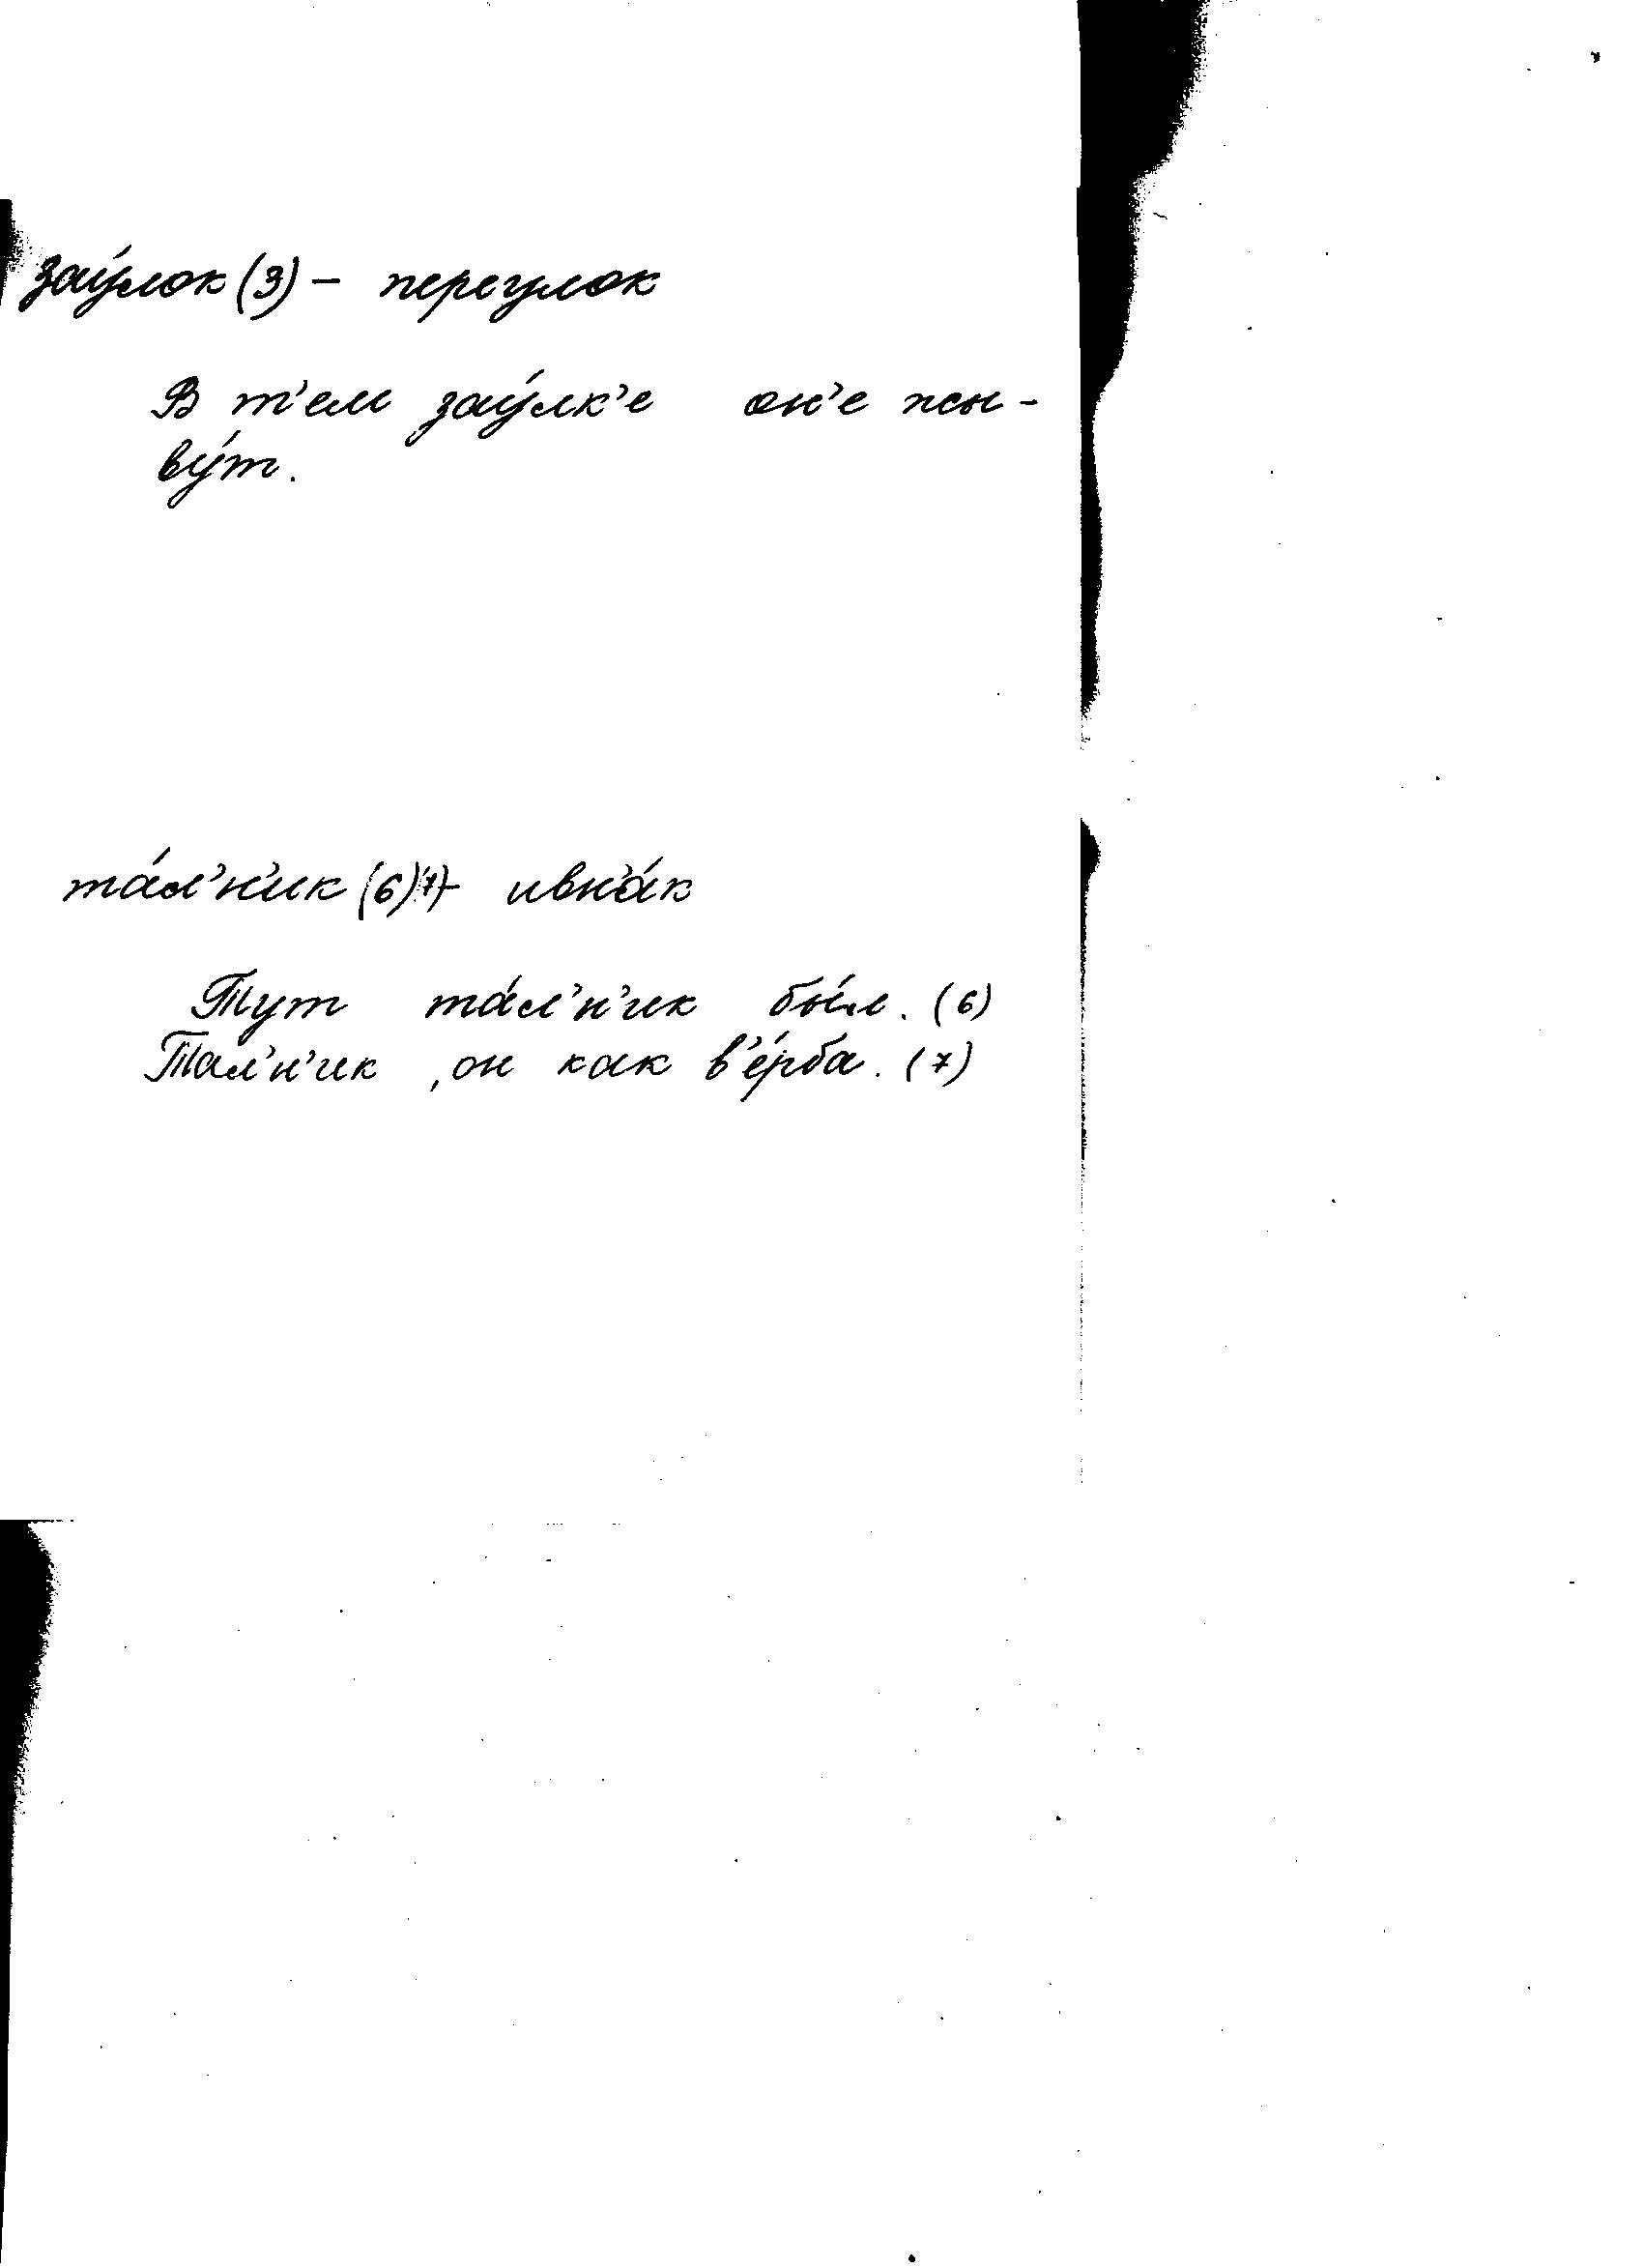 зау́лок (3) – переулок
В т'ем зау́лк'е он'е жы-
ву́т.
та́л'н'ик (6)(7)– ивн'а́к
Тут та́л'н'ик бы́л. (6)
Тал'н'ик, он как в'е́рба. (7)